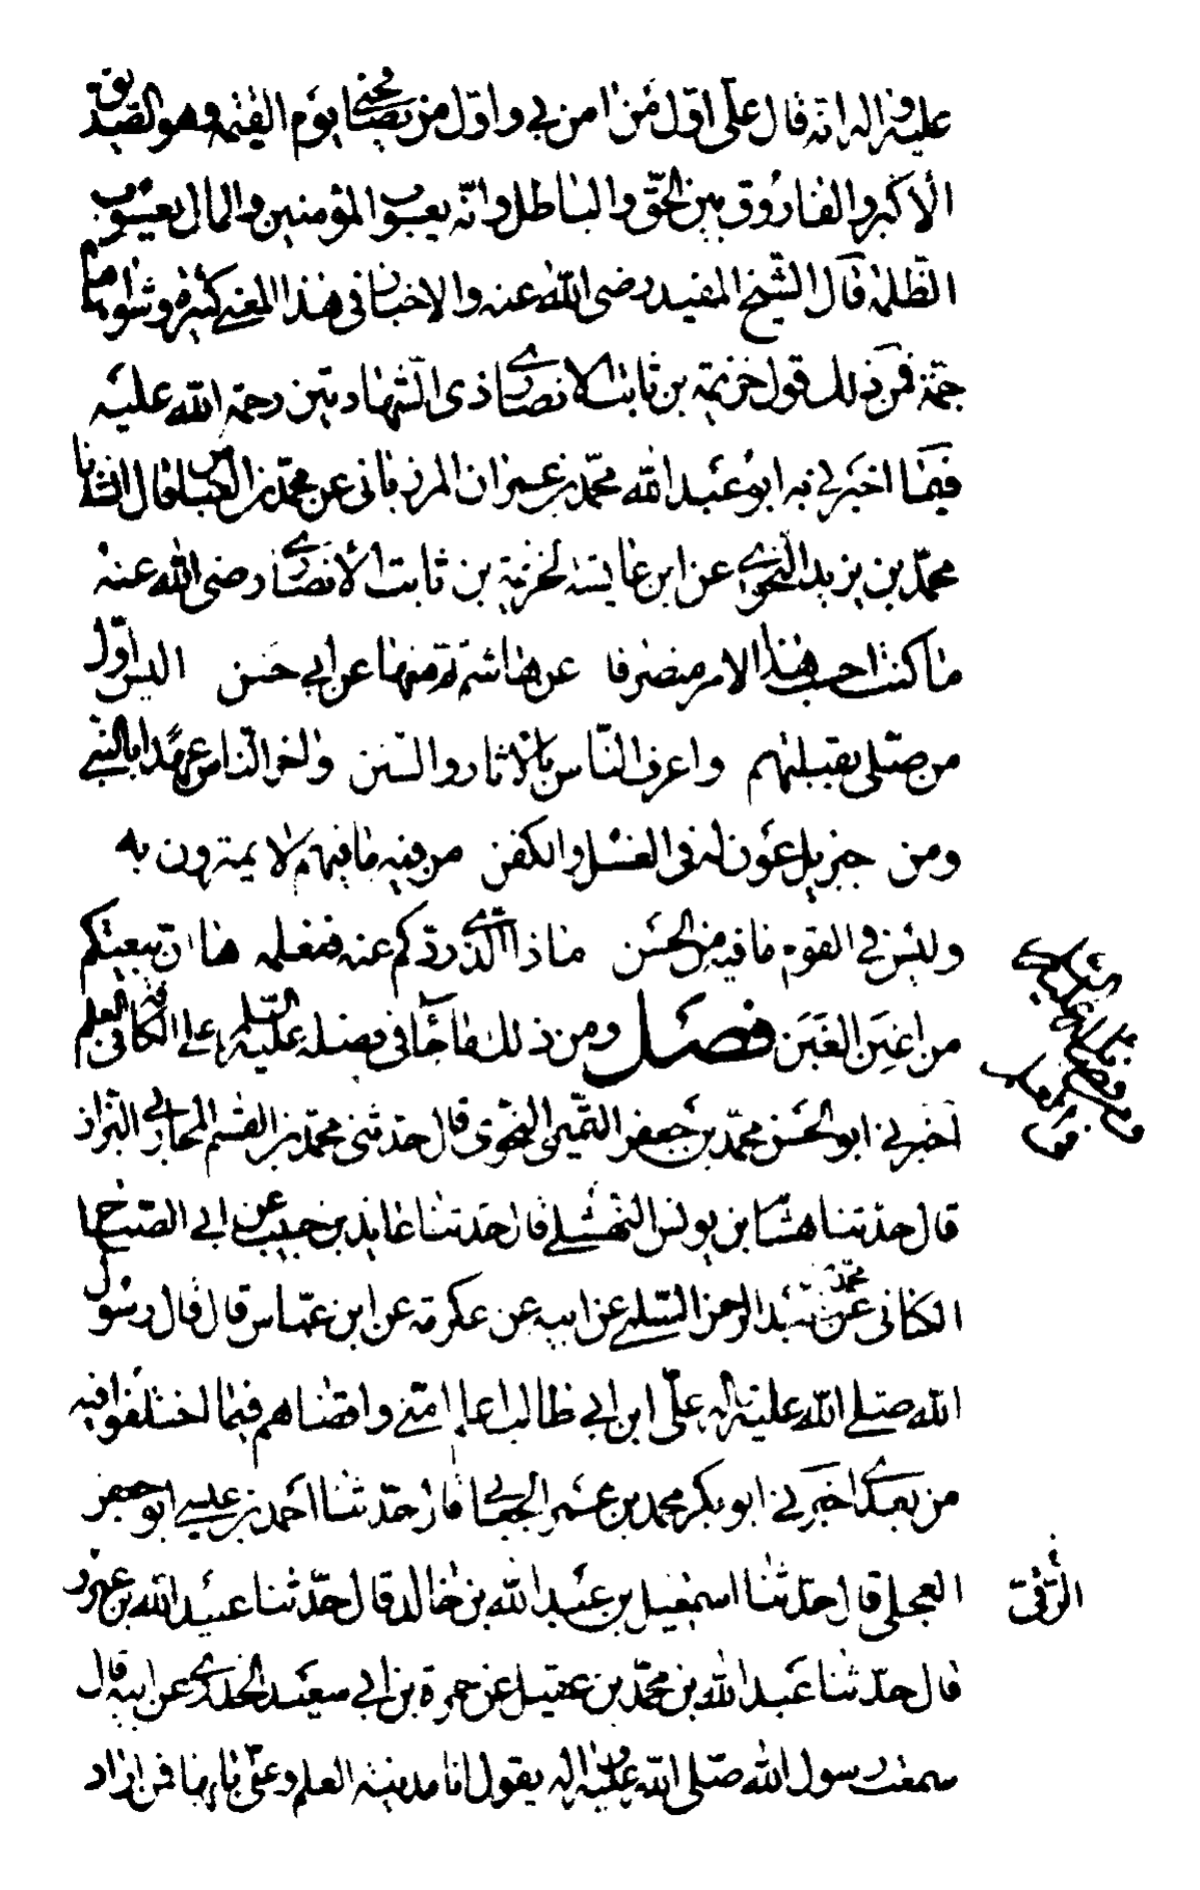 عليه واله انه قال علي اول من امن بي واول من يصافحني يوم القيمة وهو الصديق
الأكبر والفاروق بين الحق والباطل وانه يعسوب المؤمنين والمال يعسوب
الظلمة قال الشيخ المفيد رضى الله عنه والاخبار فى هذا المعنى كثيرة وشواهدها
جمة فمن ذلك قول خزيمة بن ثابت الانصاري ذى الشهادتين رحمة الله عليه
فيما اخبرني به ابو عبد الله محمد بن عمران المرزبانى عن محمد بن العباس قال انشدنا
محمد بن يزيد النحوي عن ابن عايشة لخزيمة بن ثابت الأنصاري رضى الله عنه
ما كنت احسب هذا الامر منصرفا عن هاشم ثم منها عن ابي حسن اليس اول
من صلى بقبلتهم واعرف الناس بالاثار والسنن واخر الناس عهدا بالنبي
ومن جبريل عون له فى الغسل والكفن من فيه ما فيهم لا يمترون به
وليس في القوم ما فيه من الحسن ماذا الذي ردكم عنه فنعلمه ها ان بيعتكم
من اغبن الغبن فصل ومن ذلك ما جاء فى فضله عليه السلم على الكافة فى العلم
اخبرني ابو الحسن محمد بن جعفر التميمى النحوى قال حدثنى محمد بن القسم المحاربي البزاز
قال حدثنا هشام بن يونس النهشلي قال حدثنا عايذ بن حبيب عن ابي الصباح
الكنانى عن محمد بن عبد الرحمن السلمي عن ابيه عن عكرمة عن ابن عباس قال قال رسول
الله صلى الله عليه واله علي ابن ابي طالب اعلم امتي واقضاهم فيما اختلفوا فيه
من بعدي اخبرني ابو بكر محمد بن عمر الجعابي قال حدثنا احمد بن عيسى ابو جعفر
العجلى قال حدثنا اسمعيل بن عبد الله بن خالد قال حدثنا عبيد الله بن عمرو
الرقى
قال حدثنا عبد الله بن محمد بن عقيل عن حمزة بن ابي سعيد الخدري عن ابيه قال
سمعت رسول الله صلى الله عليه واله يقول انا مدينة العلم وعلى بابها فمن اراد